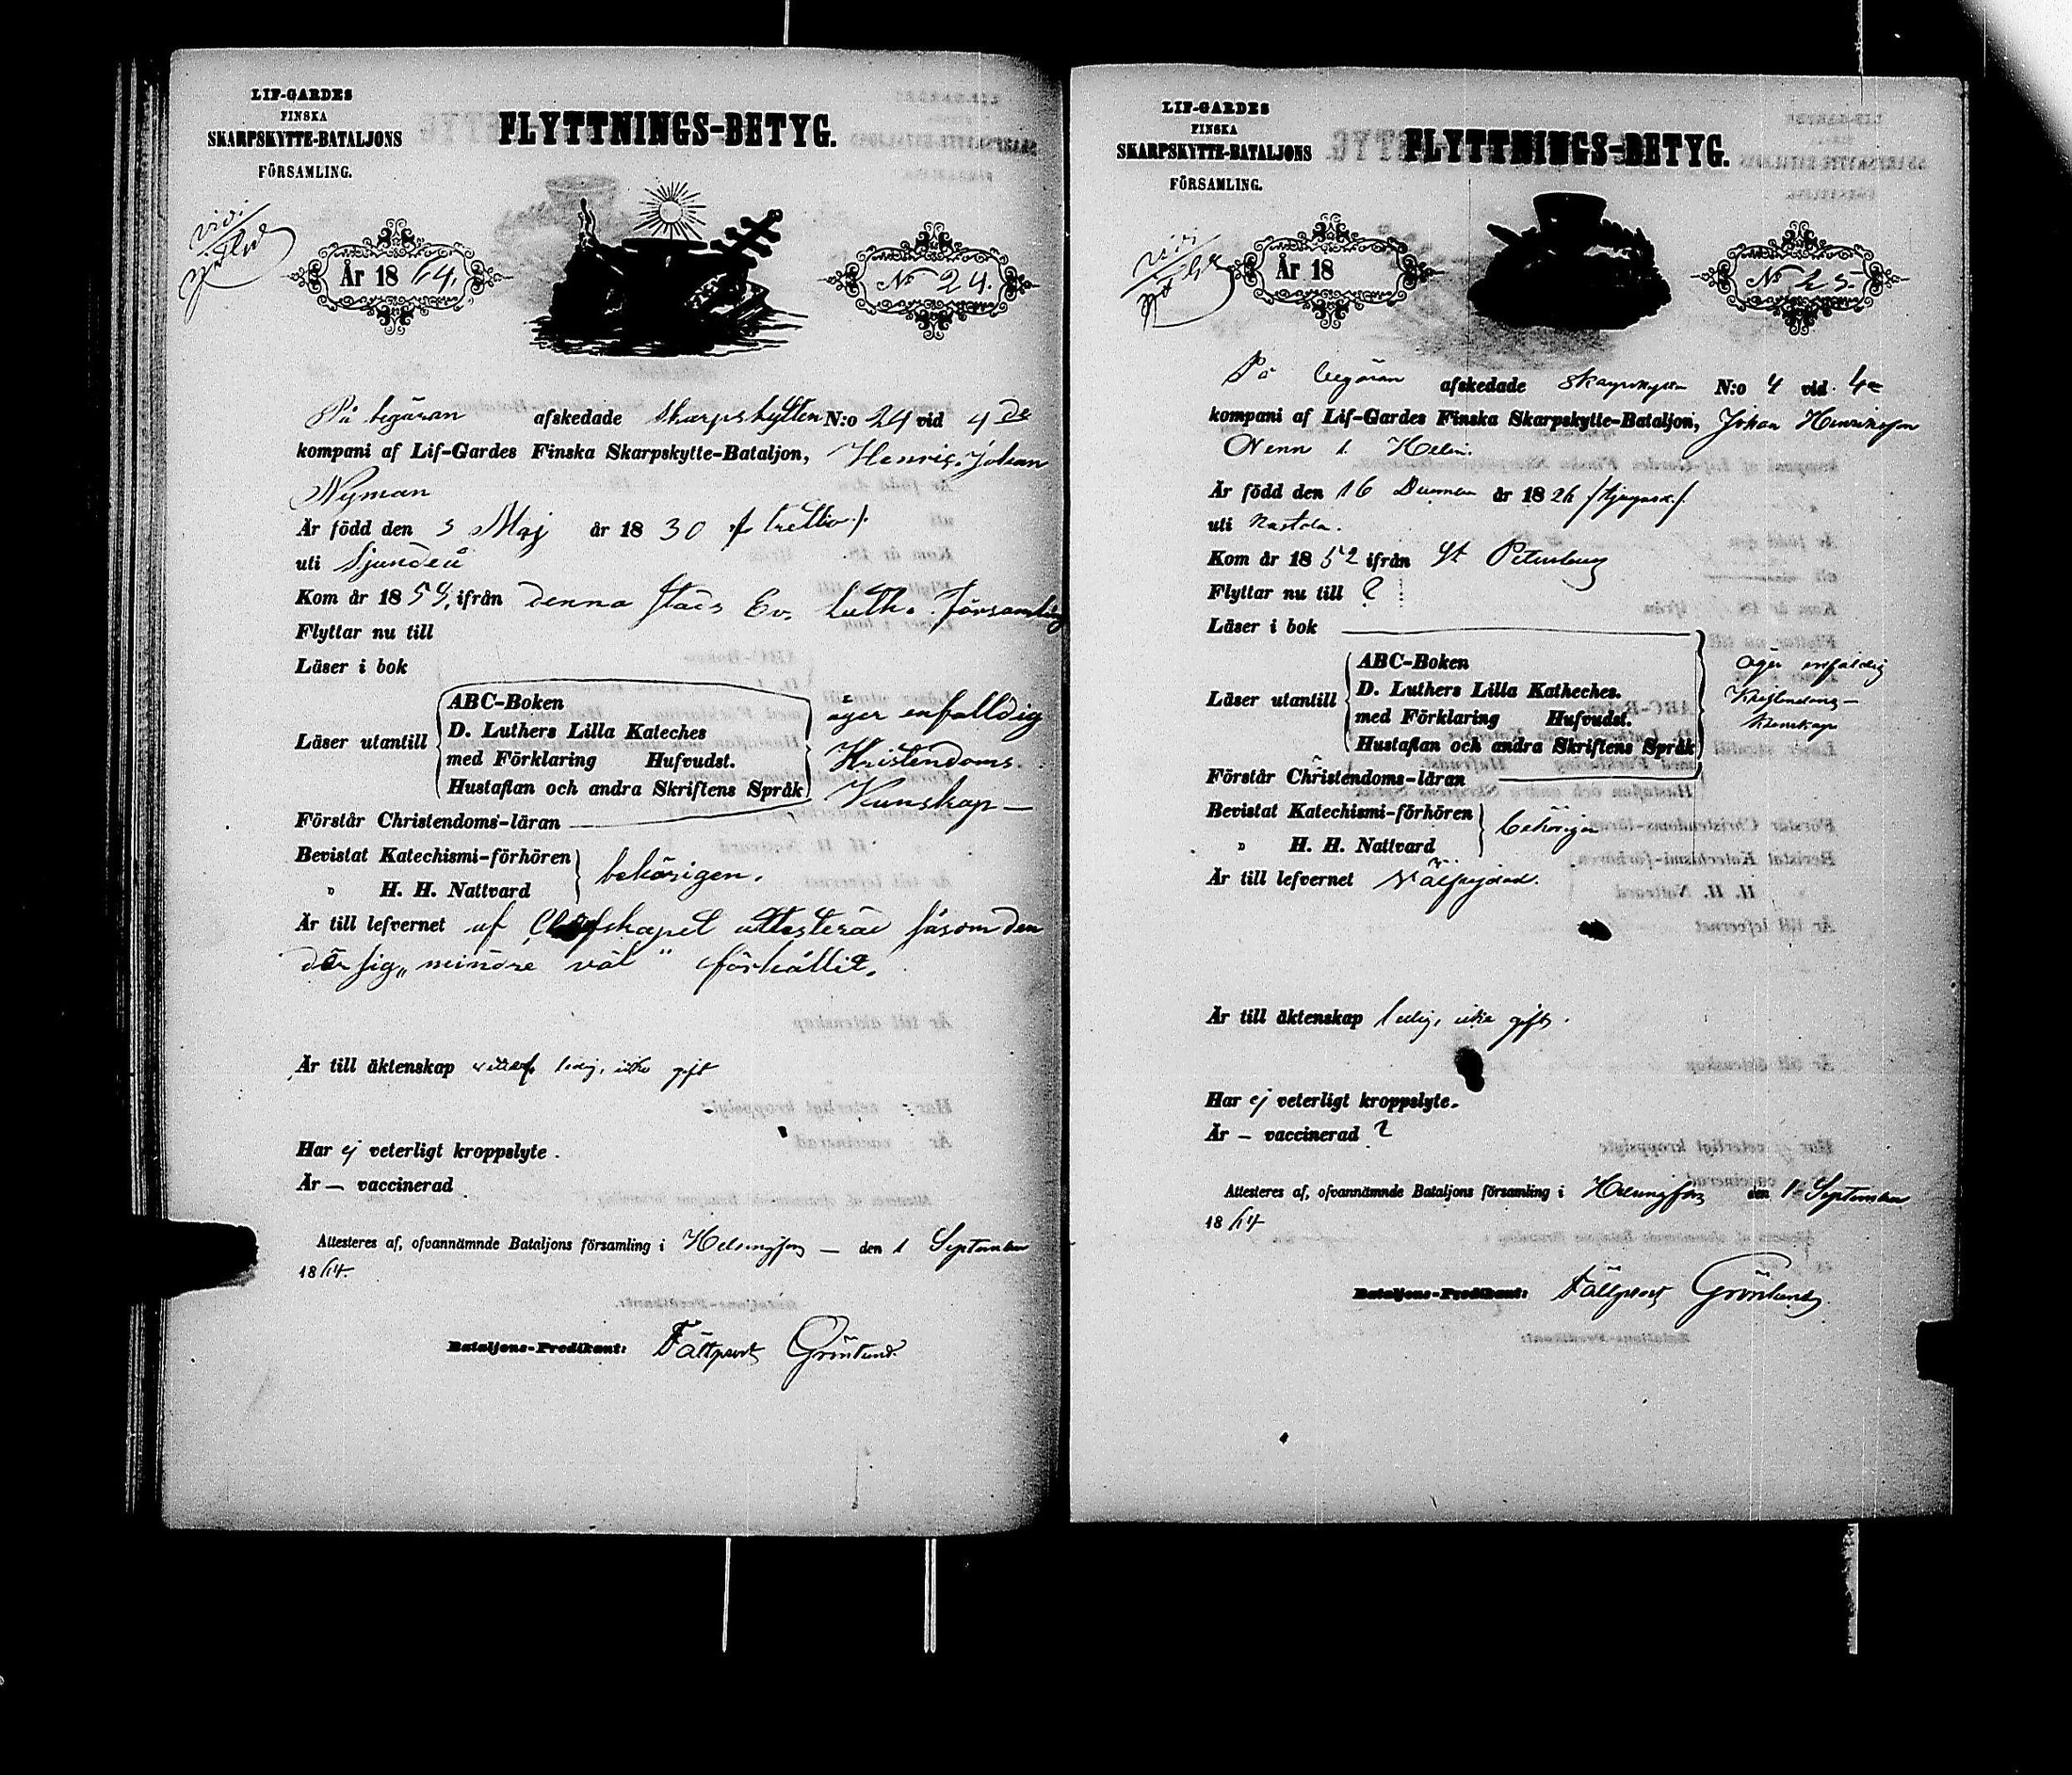 LIF-GARDES
FINSKA
SKARPSKYTTE-BATALJONS
FÖRSAMLING.
FLYTTNINGS-BETYG.
vidi
År 18 64.
No 24.
På begäran afskedade Skarpskytten N:o 24 vid 4de
kompani af Lif-Gardes Finska Skarpskytte-Bataljon, Henric Johan
Nyman
Är född den 5 Maj år 18 30 /: trettio :/
uti Sjundeå
Kom år 18 54, ifrån denna stads Ev. Luth. Församling
Flyttar nu till
Läser i bok
Läser utantill
ABC-Boken
D. Luthers Lilla Kateches
med Förklaring Hufvudst.
Hustaflan och andra Skriftens Språk
äger enfalldig
Kristendoms
Kunskap —
Förstår Christendoms-läran
Bevistat Katechismi-förhören
" H. H. Nattvard
behörigen.
Är till lefvernet af skapet attesterad såsom den
der sig „mindre väl" förhållit.
Är till äktenskap ledig, icke gift
Har ej veterligt kroppslyte.
Är — vaccinerad
Attesteres af, ofvannämnde Bataljons församling i Helsingfors — den 1 September
18 64.
Bataljons-Predikant: Fältprost Grönlund.
LIF-GARDES
FINSKA
SKARPSKYTTE-BATALJONS
FÖRSAMLING.
FLYTTNINGS-BETYG.
vidi
År 18
No 25.
På begäran afskedade skarpskytten N:o 4 vid 4e
kompani af Lif-Gardes Finska Skarpskytte-Bataljon, Johan Henriksson
Helin.
Är född den 16 December år 18 26
uti Nastola.
Kom år 18 52 ifrån St Petersburg
Flyttar nu till ?
Läser i bok
Läser utantill
ABC-Boken
D. Luthers Lilla Katheches.
med Förklaring Hufvudst.
Hustaflan och andra Skriftens Språk
äger enfaldig
Kristendoms—
kunskap
Förstår Christendoms-läran
Bevistat Katechismi-förhören
" H. H. Nattvard
behörigen
Är till lefvernet välfrejdad.
Är till äktenskap ledig, icke gift.
Har ej veterligt kroppslyte.
Är — vaccinerad ?
Attesteres af, ofvannämnde Bataljons församling i Helsingfors den 1 September
18 64
Bataljons-Predikant: Fältprost Grönlund.